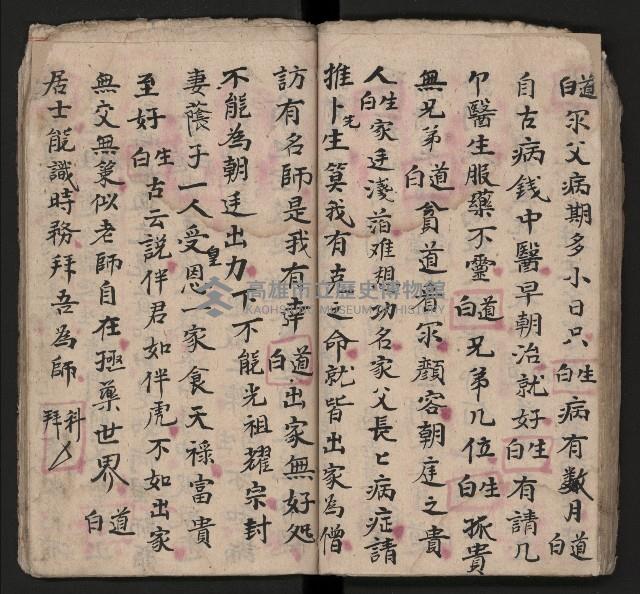 道白尔父病期多小日只生白病有數月道白
自古病錢中醫早朝治就好生白有請几
卩醫生服藥不靈道白兄弟几位生白振貴
無兄弟道白貧道有尔顏容朝庭之貴
人生白家廷淺萡难想功名家父長〻病症請
推卜先生筭我有古命就皆出家為僧
訪有名師是我有幸道白出家無好処
不能為朝廷出力下不能光祖耀宗封
妻蔭子一人受皇恩一家食天禄富貴
至好生白古云説伴君如伴虎不如出家
無交無似老師自在極藥世界道白
居士能識時務拜吾為師科拜
高雄市立歷史博物館
KAOHSIUNG MUSEUM OF HISTORY